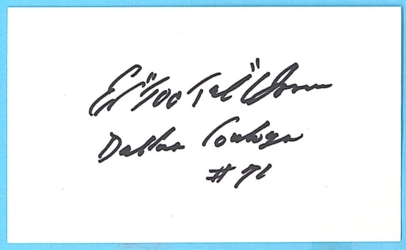 Ed "Too Tall" Jones
Dallas Cowboys
# 72